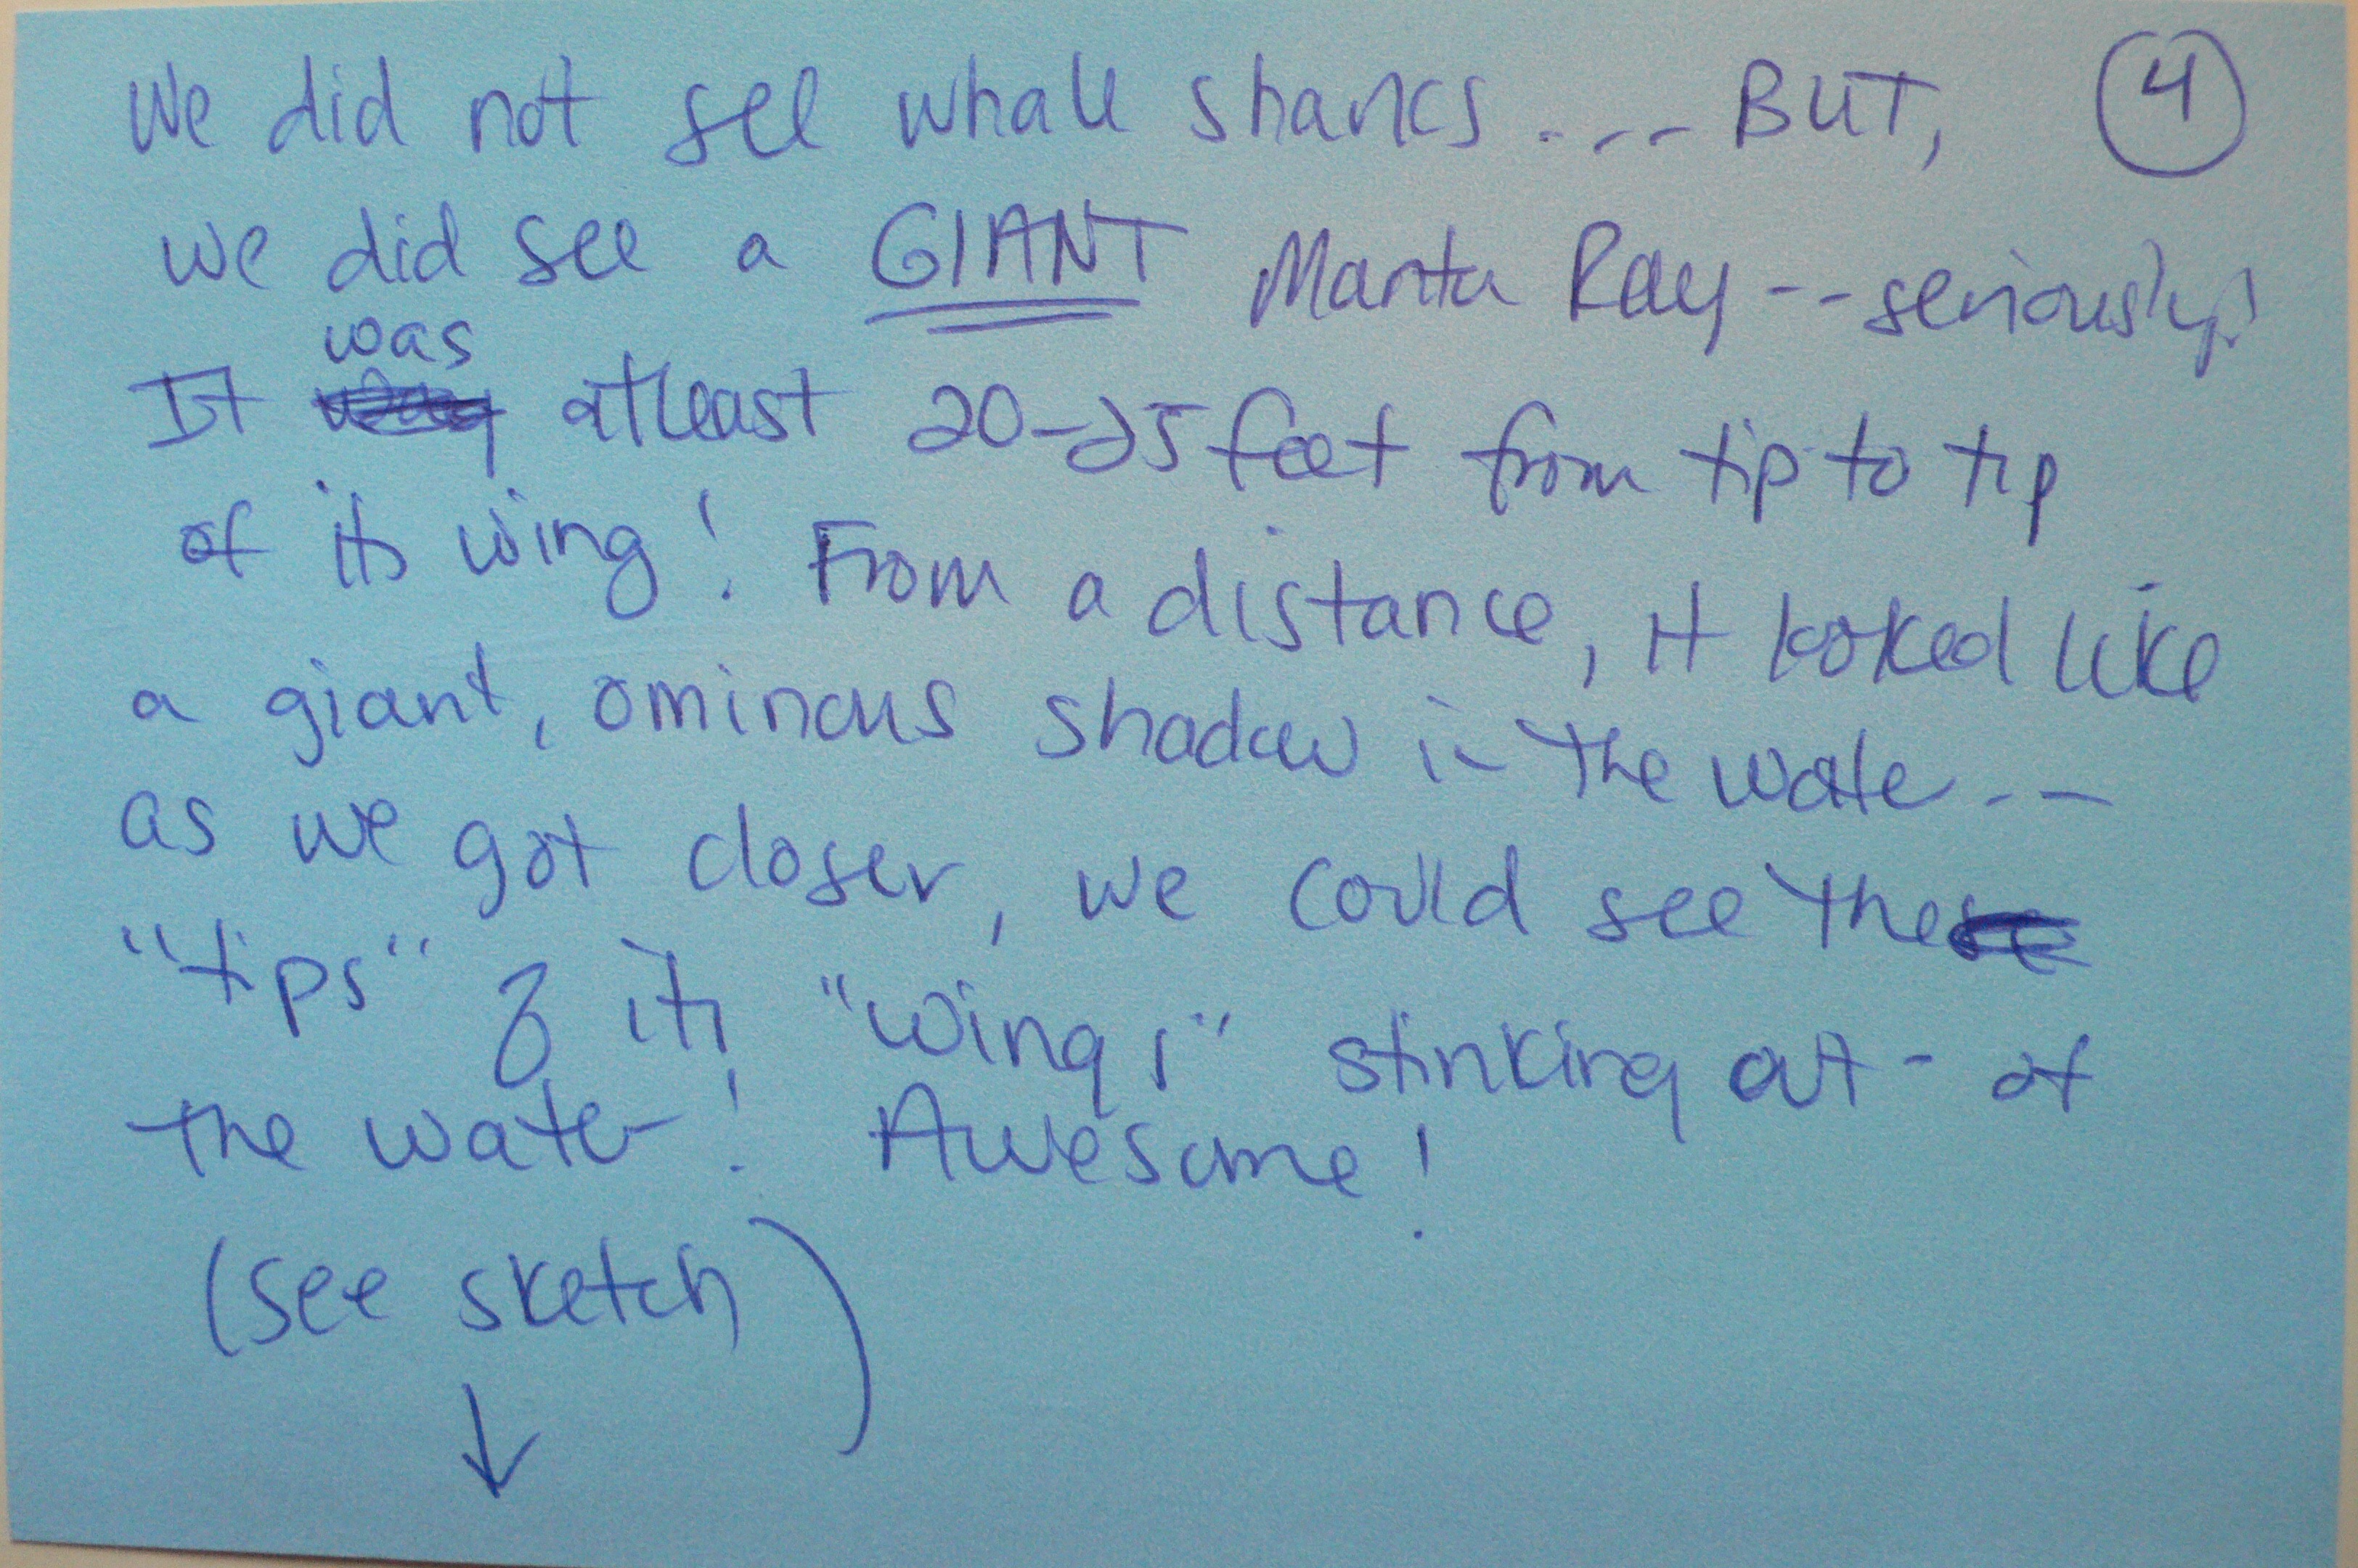 We did not see whale sharks .... BUT, 4
we did see a GIANT Manta Ray -- seriously!
It was atleast 20-25 feet from tip to tip
of its wing! From a distance, it looked like
a giant, ominous shadow in the water --
as we got closer, we could see the
"tips" of its "wings" stinking out - of
the water! Awesome!
(see sketch)
↓